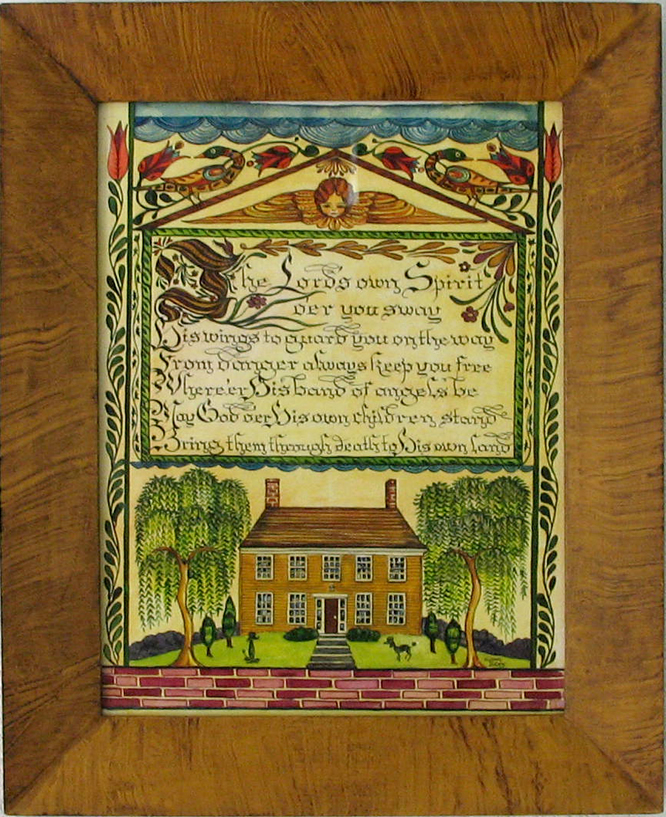 The Lords own Spirit
oer you sway
His wings to guard you on the way
From danger always keep you free
Where'er His band of angels be
May God oer His own children stand
Bring them through death to His own land